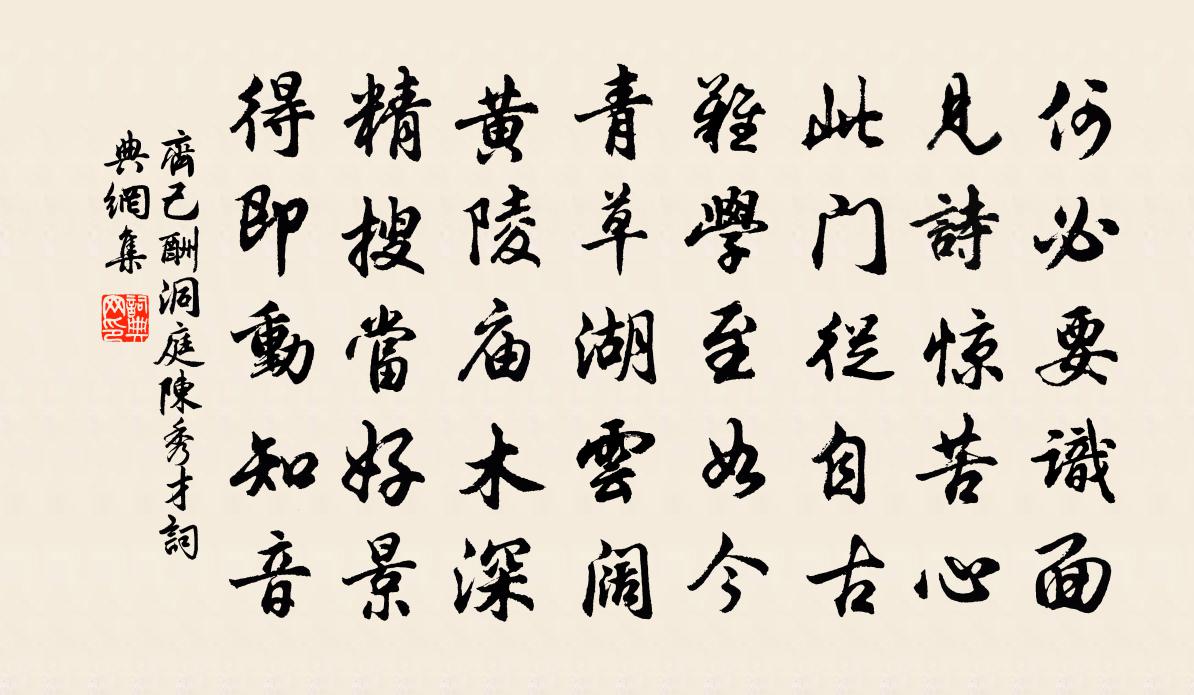 何必要識面
見詩惊苦心
此门從自古
難學至如今
青草湖雲阔
黄陵庙木深
精搜當好景
得即動知音
齊己酬洞庭陳秀才詞
典網集
詞典
网印